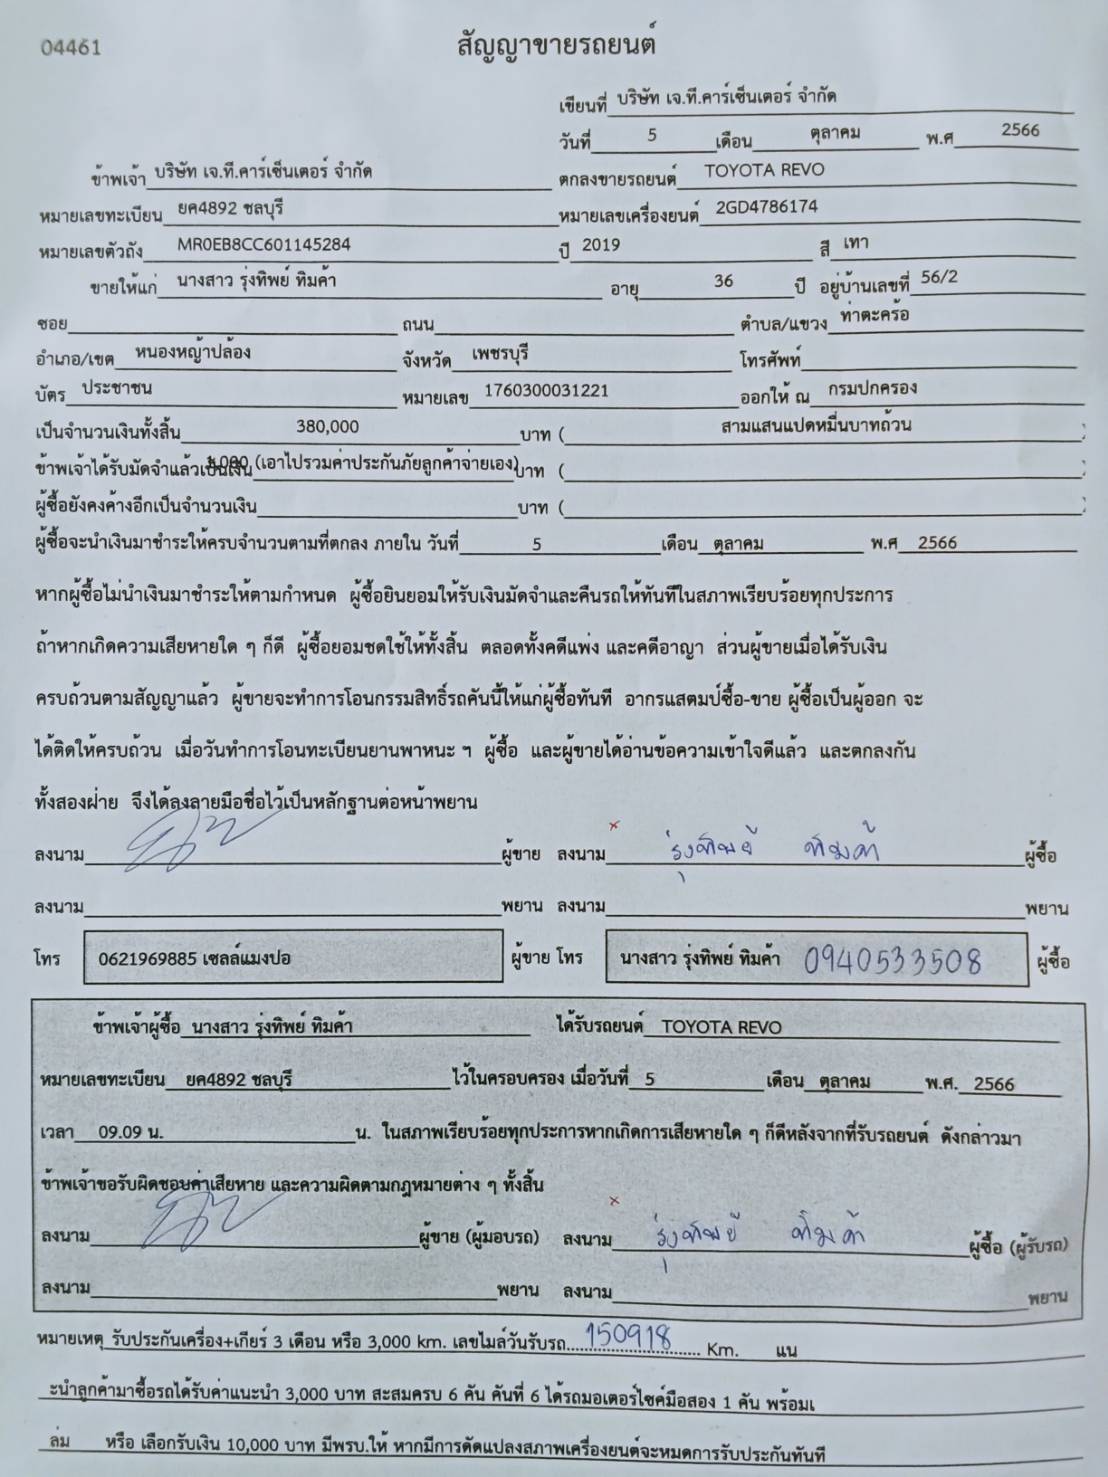 04461
สัญญาขายรถยนต์
เขียนที่ บริษัท เจ.ที.คาร์เซ็นเตอร์ จำกัด
วันที่ 5 เดือน ตุลาคม พ.ศ 2566
ข้าพเจ้า บริษัท เจ.ที.คาร์เซ็นเตอร์ จำกัด ตกลงขายรถยนต์ TOYOTA REVO
หมายเลขทะเบียน ยค4892 ชลบุรี หมายเลขเครื่องยนต์ 2GD4786174
หมายเลขตัวถัง MR0EB8CC601145284 ปี 2019 สี เทา
ขายให้แก่ นางสาว รุ่งทิพย์ ทิมค้า อายุ 36 ปี อยู่บ้านเลขที่ 56/2
ซอย ถนน ตำบล/แขวง ท่าตะคร้อ
อำเภอ/เขต หนองหญ้าปล้อง จังหวัด เพชรบุรี โทรศัพท์
บัตร ประชาชน หมายเลข 1760300031221 ออกให้ ณ กรมปกครอง
เป็นจำนวนเงินทั้งสิ้น 380,000 บาท ( สามแสนแปดหมื่นบาทถ้วน )
ข้าพเจ้าได้รับมัดจำแล้วเป็นเงิน (เอาไปรวมค่าประกันภัยลูกค้าจ่ายเอง) บาท ( )
ผู้ซื้อยังคงค้างอีกเป็นจำนวนเงิน บาท ( )
ผู้ซื้อจะนำเงินมาชำระให้ครบจำนวนตามที่ตกลง ภายใน วันที่ 5 เดือน ตุลาคม พ.ศ 2566
หากผู้ซื้อไม่นำเงินมาชำระให้ตามกำหนด ผู้ซื้อยินยอมให้รับเงินมัดจำและคืนรถให้ทันทีในสภาพเรียบร้อยทุกประการ
ถ้าหากเกิดความเสียหายใด ๆ ก็ดี ผู้ซื้อยอมชดใช้ให้ทั้งสิ้น ตลอดทั้งคดีแพ่ง และคดีอาญา ส่วนผู้ขายเมื่อได้รับเงิน
ครบถ้วนตามสัญญาแล้ว ผู้ขายจะทำการโอนกรรมสิทธิ์รถคันนี้ให้แก่ผู้ซื้อทันที อากรแสตมป์ซื้อ-ขาย ผู้ซื้อเป็นผู้ออก จะ
ได้ติดให้ครบถ้วน เมื่อวันทำการโอนทะเบียนยานพาหนะ ฯ ผู้ซื้อ และผู้ขายได้อ่านข้อความเข้าใจดีแล้ว และตกลงกัน
ทั้งสองฝ่าย จึงได้ลงลายมือชื่อไว้เป็นหลักฐานต่อหน้าพยาน
ลงนาม ผู้ขาย ลงนาม รุ่งทิพย์ ทิมค้า ผู้ซื้อ
ลงนาม พยาน ลงนาม พยาน
โทร 0621969885 เซลล์แมงปอ ผู้ขาย โทร นางสาว รุ่งทิพย์ ทิมค้า 0940533508 ผู้ซื้อ
ข้าพเจ้าผู้ซื้อ นางสาว รุ่งทิพย์ ทิมค้า ได้รับรถยนต์ TOYOTA REVO
หมายเลขทะเบียน ยค4892 ชลบุรี ไว้ในครอบครอง เมื่อวันที่ 5 เดือน ตุลาคม พ.ศ. 2566
เวลา 09.09 น. น. ในสภาพเรียบร้อยทุกประการหากเกิดการเสียหายใด ๆ ก็ดีหลังจากที่รับรถยนต์ ดังกล่าวมา
ข้าพเจ้าขอรับผิดชอบค่าเสียหาย และความผิดตามกฎหมายต่าง ๆ ทั้งสิ้น
ลงนาม ผู้ขาย (ผู้มอบรถ) ลงนาม รุ่งทิพย์ ทิมค้า ผู้ซื้อ (ผู้รับรถ)
ลงนาม พยาน ลงนาม พยาน
หมายเหตุ รับประกันเครื่อง+เกียร์ 3 เดือน หรือ 3,000 km. เลขไมล์วันรับรถ 150918 Km. แน
ะนำลูกค้ามาซื้อรถได้รับค่าแนะนำ 3,000 บาท สะสมครบ 6 คัน คันที่ 6 ได้รถมอเตอร์ไซค์มือสอง 1 คัน พร้อมเ
ล่ม หรือ เลือกรับเงิน 10,000 บาท มีพรบ.ให้ หากมีการดัดแปลงสภาพเครื่องยนต์จะหมดการรับประกันทันที